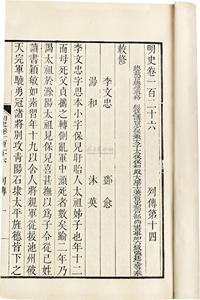 明史卷一百二十六　列傳第十四
敕修
李文忠　鄧愈
湯和　沐英
李文忠字思本小字保兒盱眙人太祖姊子也年十二
而母死父貞攜之轉側亂軍中瀕死者數矣踰二年乃
謁太祖於滁陽太祖見保兒喜甚撫以為子令從己姓
讀書穎敏如素習年十九以舍人將親軍從援池州破
天完軍驍勇冠諸將別攻青陽石埭太平旌德皆下之